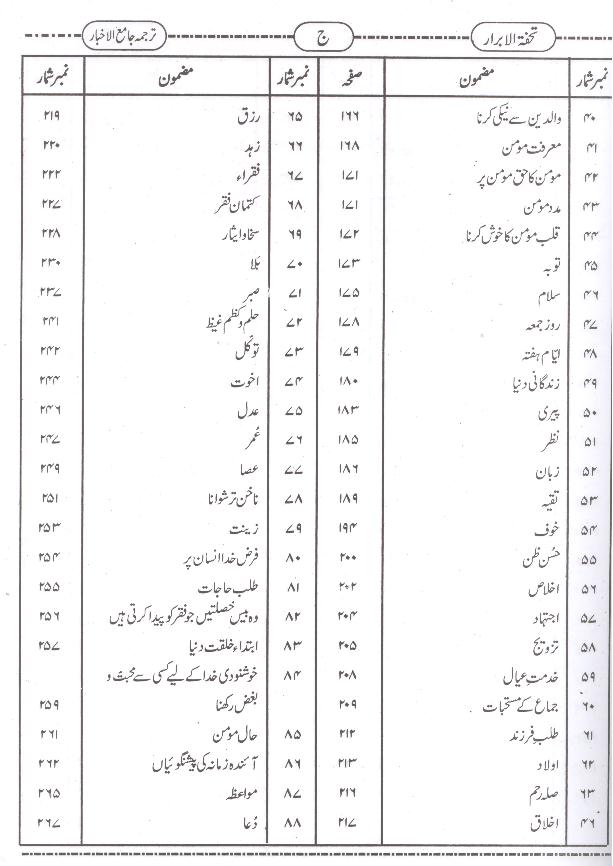 تحفۃ الابرار ج ترجمہ جامع الاخبار
نمبر شمار مضمون صفحہ
۴۰ والدین سے نیکی کرنا ۱۶۶
۴۱ معرفت مومن ۱۶۸
۴۲ مومن کا حق مومن پر ۱۷۱
۴۳ مدد مومن ۱۷۱
۴۴ قلب مومن کا خوش کرنا ۱۷۲
۴۵ توبہ ۱۷۳
۴۶ سلام ۱۷۵
۴۷ روز جمعہ ۱۷۸
۴۸ ایّام ہفتہ ۱۷۹
۴۹ زندگانی دنیا ۱۸۰
۵۰ پیری ۱۸۳
۵۱ نظر ۱۸۵
۵۲ زبان ۱۸۶
۵۳ تقیہ ۱۸۹
۵۴ خوف ۱۹۴
۵۵ حُسن ظن ۲۰۰
۵۶ اخلاص ۲۰۲
۵۷ اجتہاد ۲۰۴
۵۸ تزویج ۲۰۵
۵۹ خدمتِ عیال ۲۰۸
۶۰ جماع کے مستحبات ۲۰۹
۶۱ طلب فرزند ۲۱۲
۶۲ اولاد ۲۱۳
۶۳ صلہ رحم ۲۱۶
۴۶ اخلاق ۲۱۷
نمبر شمار مضمون نمبر شمار
۶۵ رزق ۲۱۹
۶۶ زہد ۲۲۰
۶۷ فقراء ۲۲۲
۶۸ کتمان فقر ۲۲۷
۶۹ سخا و ایثار ۲۲۸
۷۰ بلا ۲۳۰
۷۱ صبر ۲۳۷
۷۲ حلم و کظم غیظ ۲۴۱
۷۳ توکّل ۲۴۲
۷۴ اخوت ۲۴۴
۷۵ عدل ۲۴۶
۷۶ عُمر ۲۴۷
۷۷ عصا ۲۴۹
۷۸ ناخن ترشوانا ۲۵۱
۷۹ زینت ۲۵۳
۸۰ فرض خدا انسان پر ۲۵۴
۸۱ طلب حاجات ۲۵۵
۸۲ وہ بیس خصلتیں جو فقر کو پیدا کرتی ہیں ۲۵۶
۸۳ ابتداء خلقت دنیا ۲۵۷
۸۴ خوشنودی خدا کے لیے کسی سے محبت و
بغض رکھنا ۲۵۹
۸۵ حال مومن ۲۶۱
۸۶ آئندہ زمانہ کی پیشنگوئیاں ۲۶۲
۸۷ مواعظہ ۲۶۵
۸۸ دُعا ۲۶۷